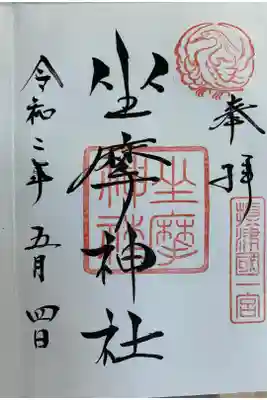 奉拝
摂津國一宮
坐摩神社
坐摩神社
令和二年五月四日